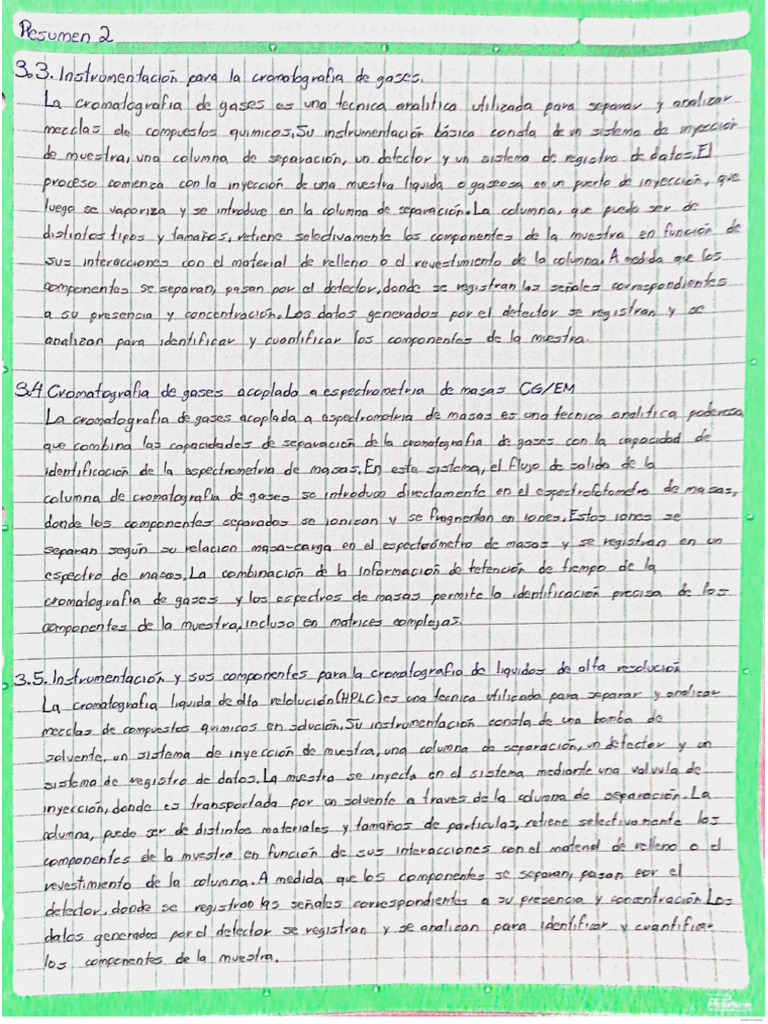 Resumen 2
3.3. Instrumentación para la cromatografia de gases.
La cromatografia de gases es una tecnica analitica utilizada para separar y analizar
mezclas de compuestos quimicos. Su instrumentación básica consta de un sistema de inyección
de muestra, una columna de separación, un detector y un sistema de registro de datos. El
proceso comienza con la inyección de una muestra liquida o gaseosa en un puerto de inyección, que
luego se vaporiza y se introduce en la columna de separación. La columna, que puede ser de
distintos tipos y tamaños, retiene selectivamente los componentes de la muestra en función de
sus interacciones con el material de relleno o el revestimiento de la columna. A medida que los
componentes se separan, pasan por el detector, donde se registran las señales correspondientes
a su presencia y concentración. Los datos generados por el detector se registran y se
analizan para identificar y cuantificar los componentes de la muestra.
3.4 Cromatografia de gases acoplado a espectrometria de masas CG/EM
La cromatografia de gases acoplada a espectrometria de masas es una tecnica analitica poderosa
que combina las capacidades de separación de la cromatografia de gases con la capacidad de
identificación de la espectrometria de masas. En este sistema, el flujo de salida de la
columna de cromatografia de gases se introduce directamente en el espectrofotometro de masas,
donde los componentes separados se ionizan y se fragmentan en iones. Estos iones se
separan según su relacion masa-carga en el espectrómetro de masas y se registran en un
espectro de masas. La combinación de la información de retención de tiempo de la
cromatografia de gases y los espectros de masas permite la identificación precisa de los
componentes de la muestra, incluso en matrices complejas.
3.5. Instrumentación y sus componentes para la cromatografia de liquidos de alta resolución
La cromatografia liquida de alta relolución (HPLC) es una tecnica utilizada para separar y analizar
mezclas de compuestos quimicos en solución. Su instrumentación consta de una bomba de
solvente, un sistema de inyección de muestra, una columna de separación, un detector y un
sistema de registro de datos. La muestra se inyecta en el sistema mediante una valvula de
inyección, donde es transportada por un solvente a traves de la columna de separación. La
columna, puede ser de distintos materiales y tamaños de particulas, retiene selectivamente los
componentes de la muestra en función de sus interacciones con el material de relleno o el
revestimiento de la columna. A medida que los componentes se separan, pasan por el
detector, donde se registran las señales correspondientes a su presencia y concentración Los
datos generados por el detector se registran y se analizan para identificar y cuantificar
los componentes de la muestra.